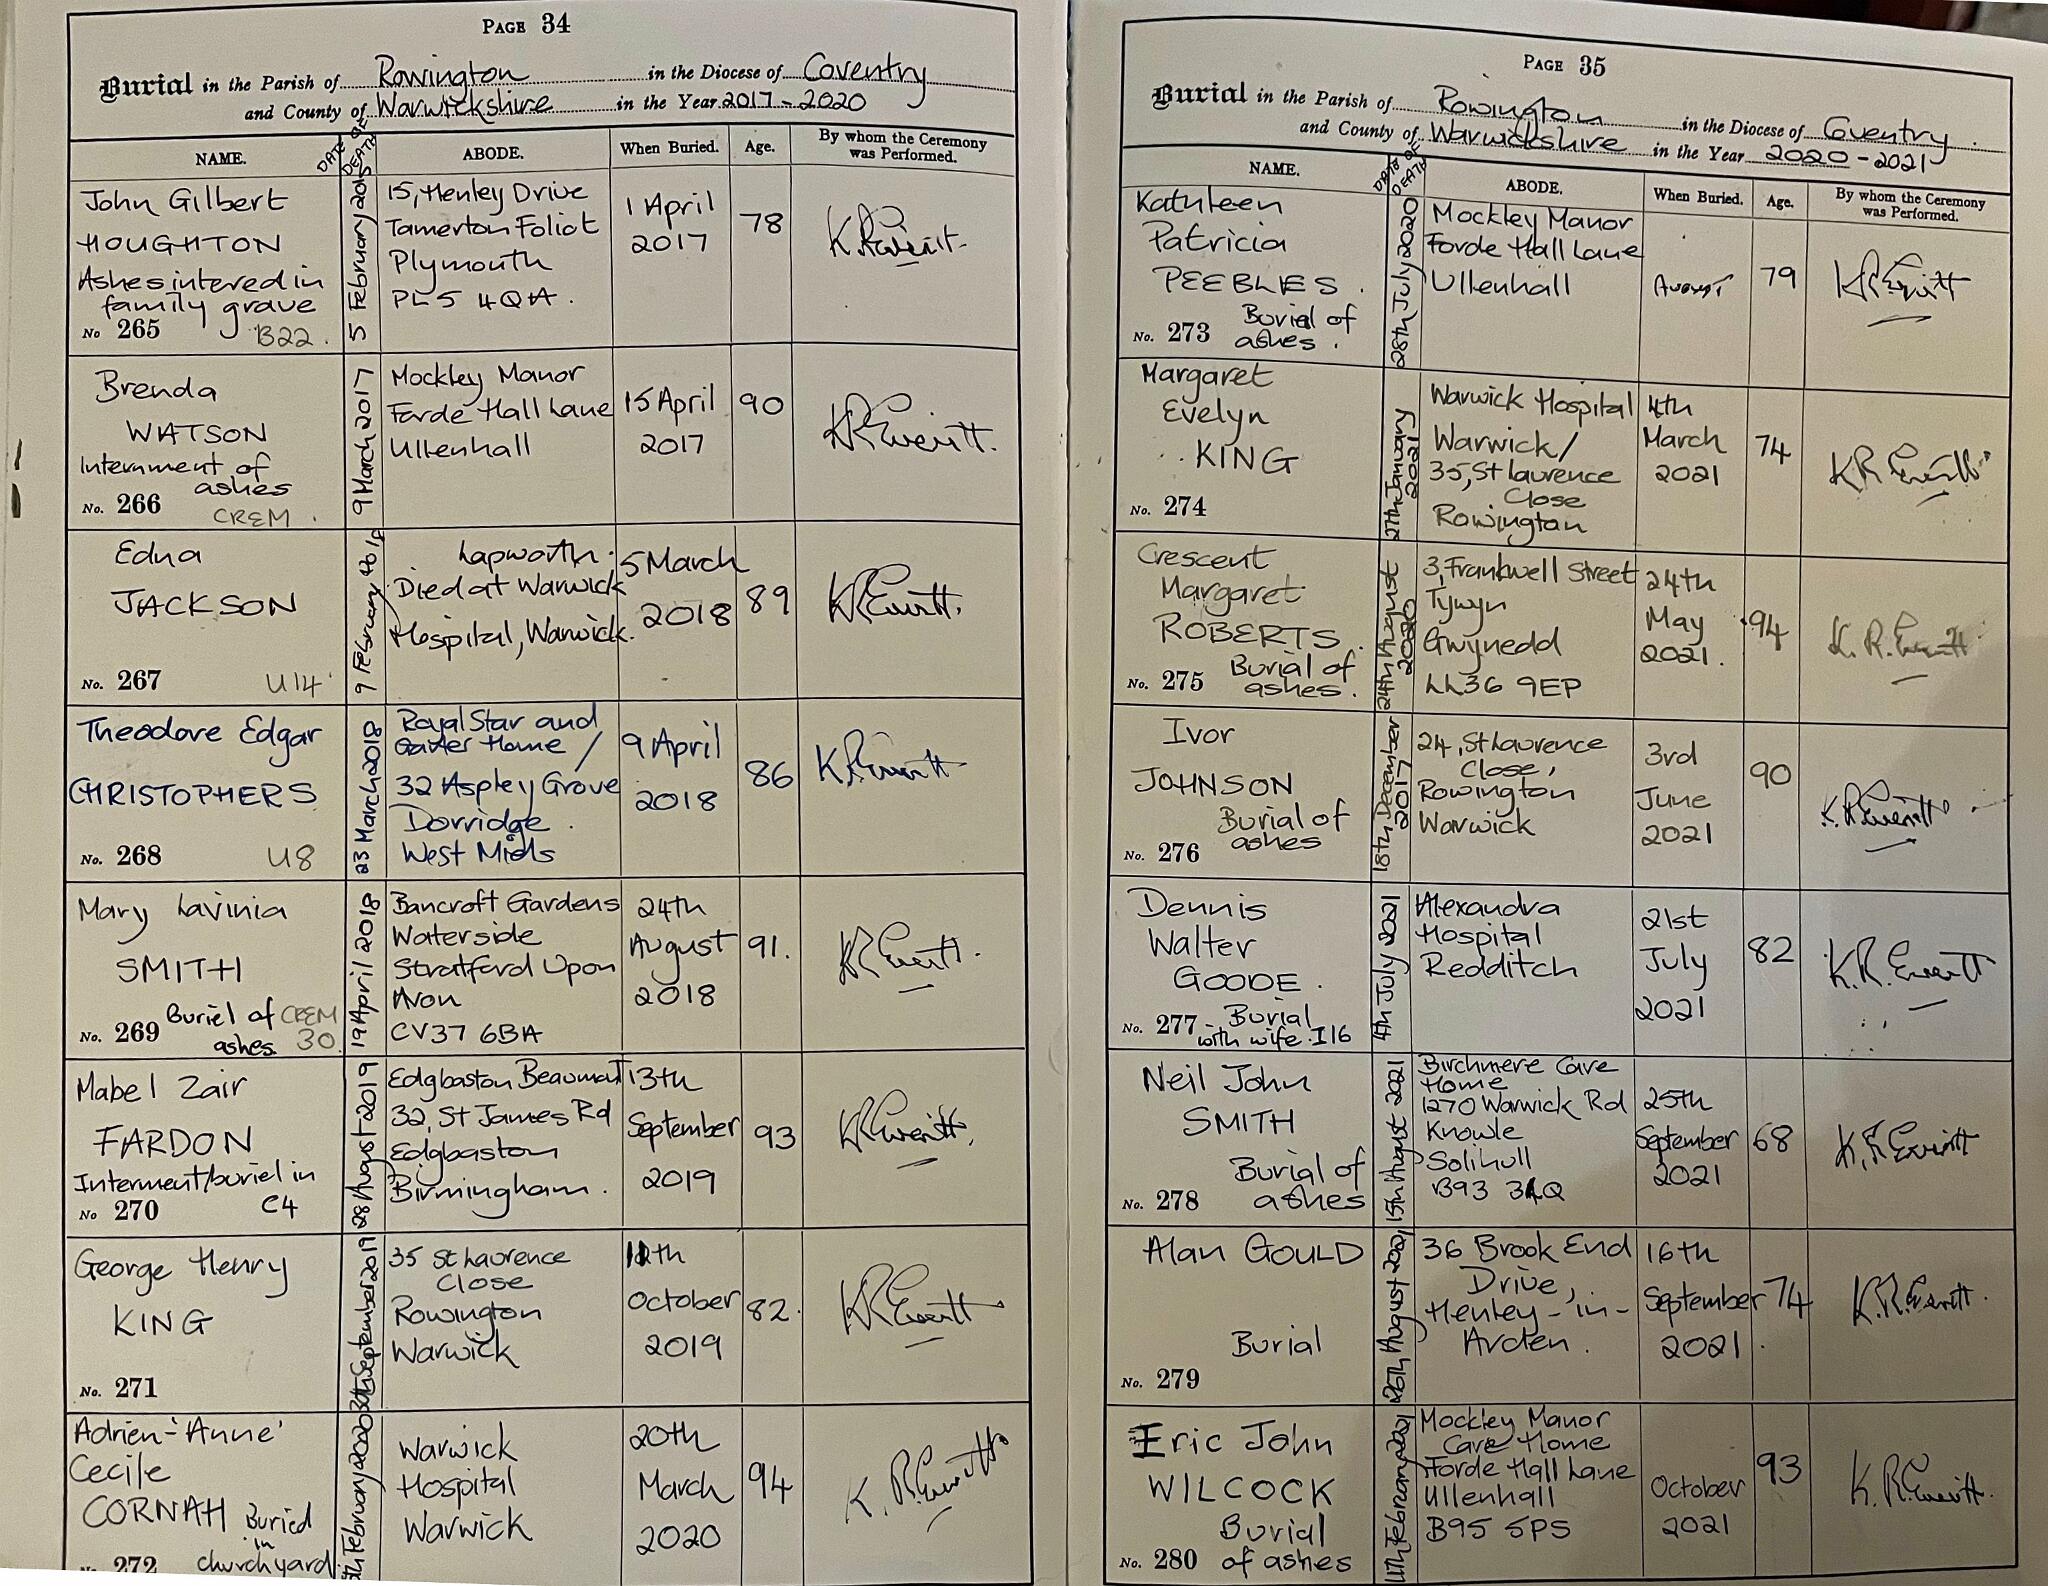 PAGE 34
Burial in the Parish of Rowington in the Diocese of Coventry
and County of Warwickshire in the Year 2017-2020
NAME. DATE OF DEATH ABODE. When Buried. Age. By whom the Ceremony was Performed.
John Gilbert
HOUGHTON
Ashes intered in
family grave
No 265 B22.
5 February 2015
15, Henley Drive
Tamerton Foliot
Plymouth
PL5 4QA.
1 April
2017
78
K R Everitt.
Brenda
WATSON
Internment of
ashes
No. 266 CREM.
9 March 2017
Mockley Manor
Forde Hall Lane
Ullenhall
15 April
2017
90
K R Everitt.
Edna
JACKSON
No. 267 U14
9 February
Lapworth.
Died at Warwick
Hospital, Warwick.
5 March
2018
89
K R Everitt.
Theodore Edgar
CHRISTOPHERS
No. 268 U8
23 March 2018
Royal Star and
Garter Home /
32 Aspley Grove
Dorridge.
West Mids
9 April
2018
86
K R Everitt
Mary Lavinia
SMITH
Buriel of CREM
No. 269 ashes. 30.
19 April 2018
Bancroft Gardens
Waterside
Stratford Upon
Avon
CV37 6BA
24th
August
2018
91.
K R Everitt.
Mabel Zair
FARDON
Interment/buriel in
No 270 C4
28 August 2019
Edgbaston Beaumont
32, St James Rd
Edgbaston
Birmingham.
13th
September
2019
93
K R Everitt.
George Henry
KING
No. 271
30th September 2019
35 St Laurence
Close
Rowington
Warwick
October
2019
82.
K R Everitt
Adrien-'Anne'
Cecile
CORNAH Buried
in
No. 272 churchyard.
February 2020
Warwick
Hospital
Warwick
20th
March
2020
94
K. R. Everitt
PAGE 35
Burial in the Parish of Rowington in the Diocese of Coventry.
and County of Warwickshire in the Year 2020-2021
NAME. DATE OF DEATH ABODE. When Buried. Age. By whom the Ceremony was Performed.
Kathleen
Patricia
PEEBLES.
Burial of
No. 273 ashes.
28th July 2020
Mockley Manor
Forde Hall Lane
Ullenhall
August
79
K R Everitt
Margaret
Evelyn
KING
No. 274
27th January
2021
Warwick Hospital
Warwick/
35, St Laurence
Close
Rowington
4th
March
2021
74
K R Everitt
Crescent
Margaret
ROBERTS.
No. 275 Burial of
ashes.
24th August
2020
3, Frankwell Street
Tywyn
Gwynedd
LL36 9EP
24th
May
2021.
94
K. R. Everitt
Ivor
JOHNSON
Burial of
No. 276 ashes
18th December
2017
24, St Laurence
Close,
Rowington
Warwick
3rd
June
2021
90
K. R Everitt
Dennis
Walter
GOODE.
No. 277 Burial
with wife. I16
4th July 2021
Alexandra
Hospital
Redditch
21st
July
2021
82
K. R. Everitt
Neil John
SMITH
Burial of
No. 278 ashes
15th August 2021
Birchmere Care
Home
1270 Warwick Rd
Knowle
Solihull
B93
25th
September
2021
68
K. R Everitt
Alan GOULD
Burial
No. 279
August 2021
36 Brook End
Drive,
Henley-in-
Arden.
16th
September
2021
74
K. R. Everitt.
Eric John
WILCOCK
Burial
No. 280 of ashes
11th February 2021
Mockley Manor
Care Home
Forde Hall Lane
Ullenhall
B95 5PS
October
2021
93
K. R Everitt.